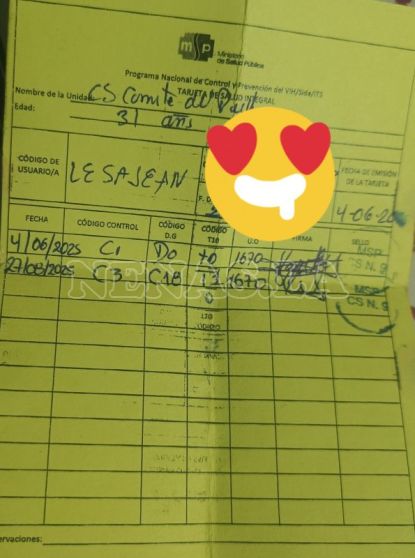 msp
Ministerio
de Salud Pública
Programa Nacional de Control y Prevención del VIH/Sida/ITS
TARJETA DE SALUD INTEGRAL
Nombre de la Unidad: CS Comite del
Edad: 31 años
CÓDIGO DE
USUARIO/A
LESAJEAN
FECHA DE EMISIÓN
DE LA TARJETA
4-06-20
FECHA CÓDIGO CONTROL CÓDIGO D.G CÓDIGO T10 D.O FIRMA SELLO
4/06/2025 C1 D0 T0 1670 MSP
CS N. 9
27/08/2025 C3 C1B 1670 MSP
CS N. 9
NENASILA
ervaciones: